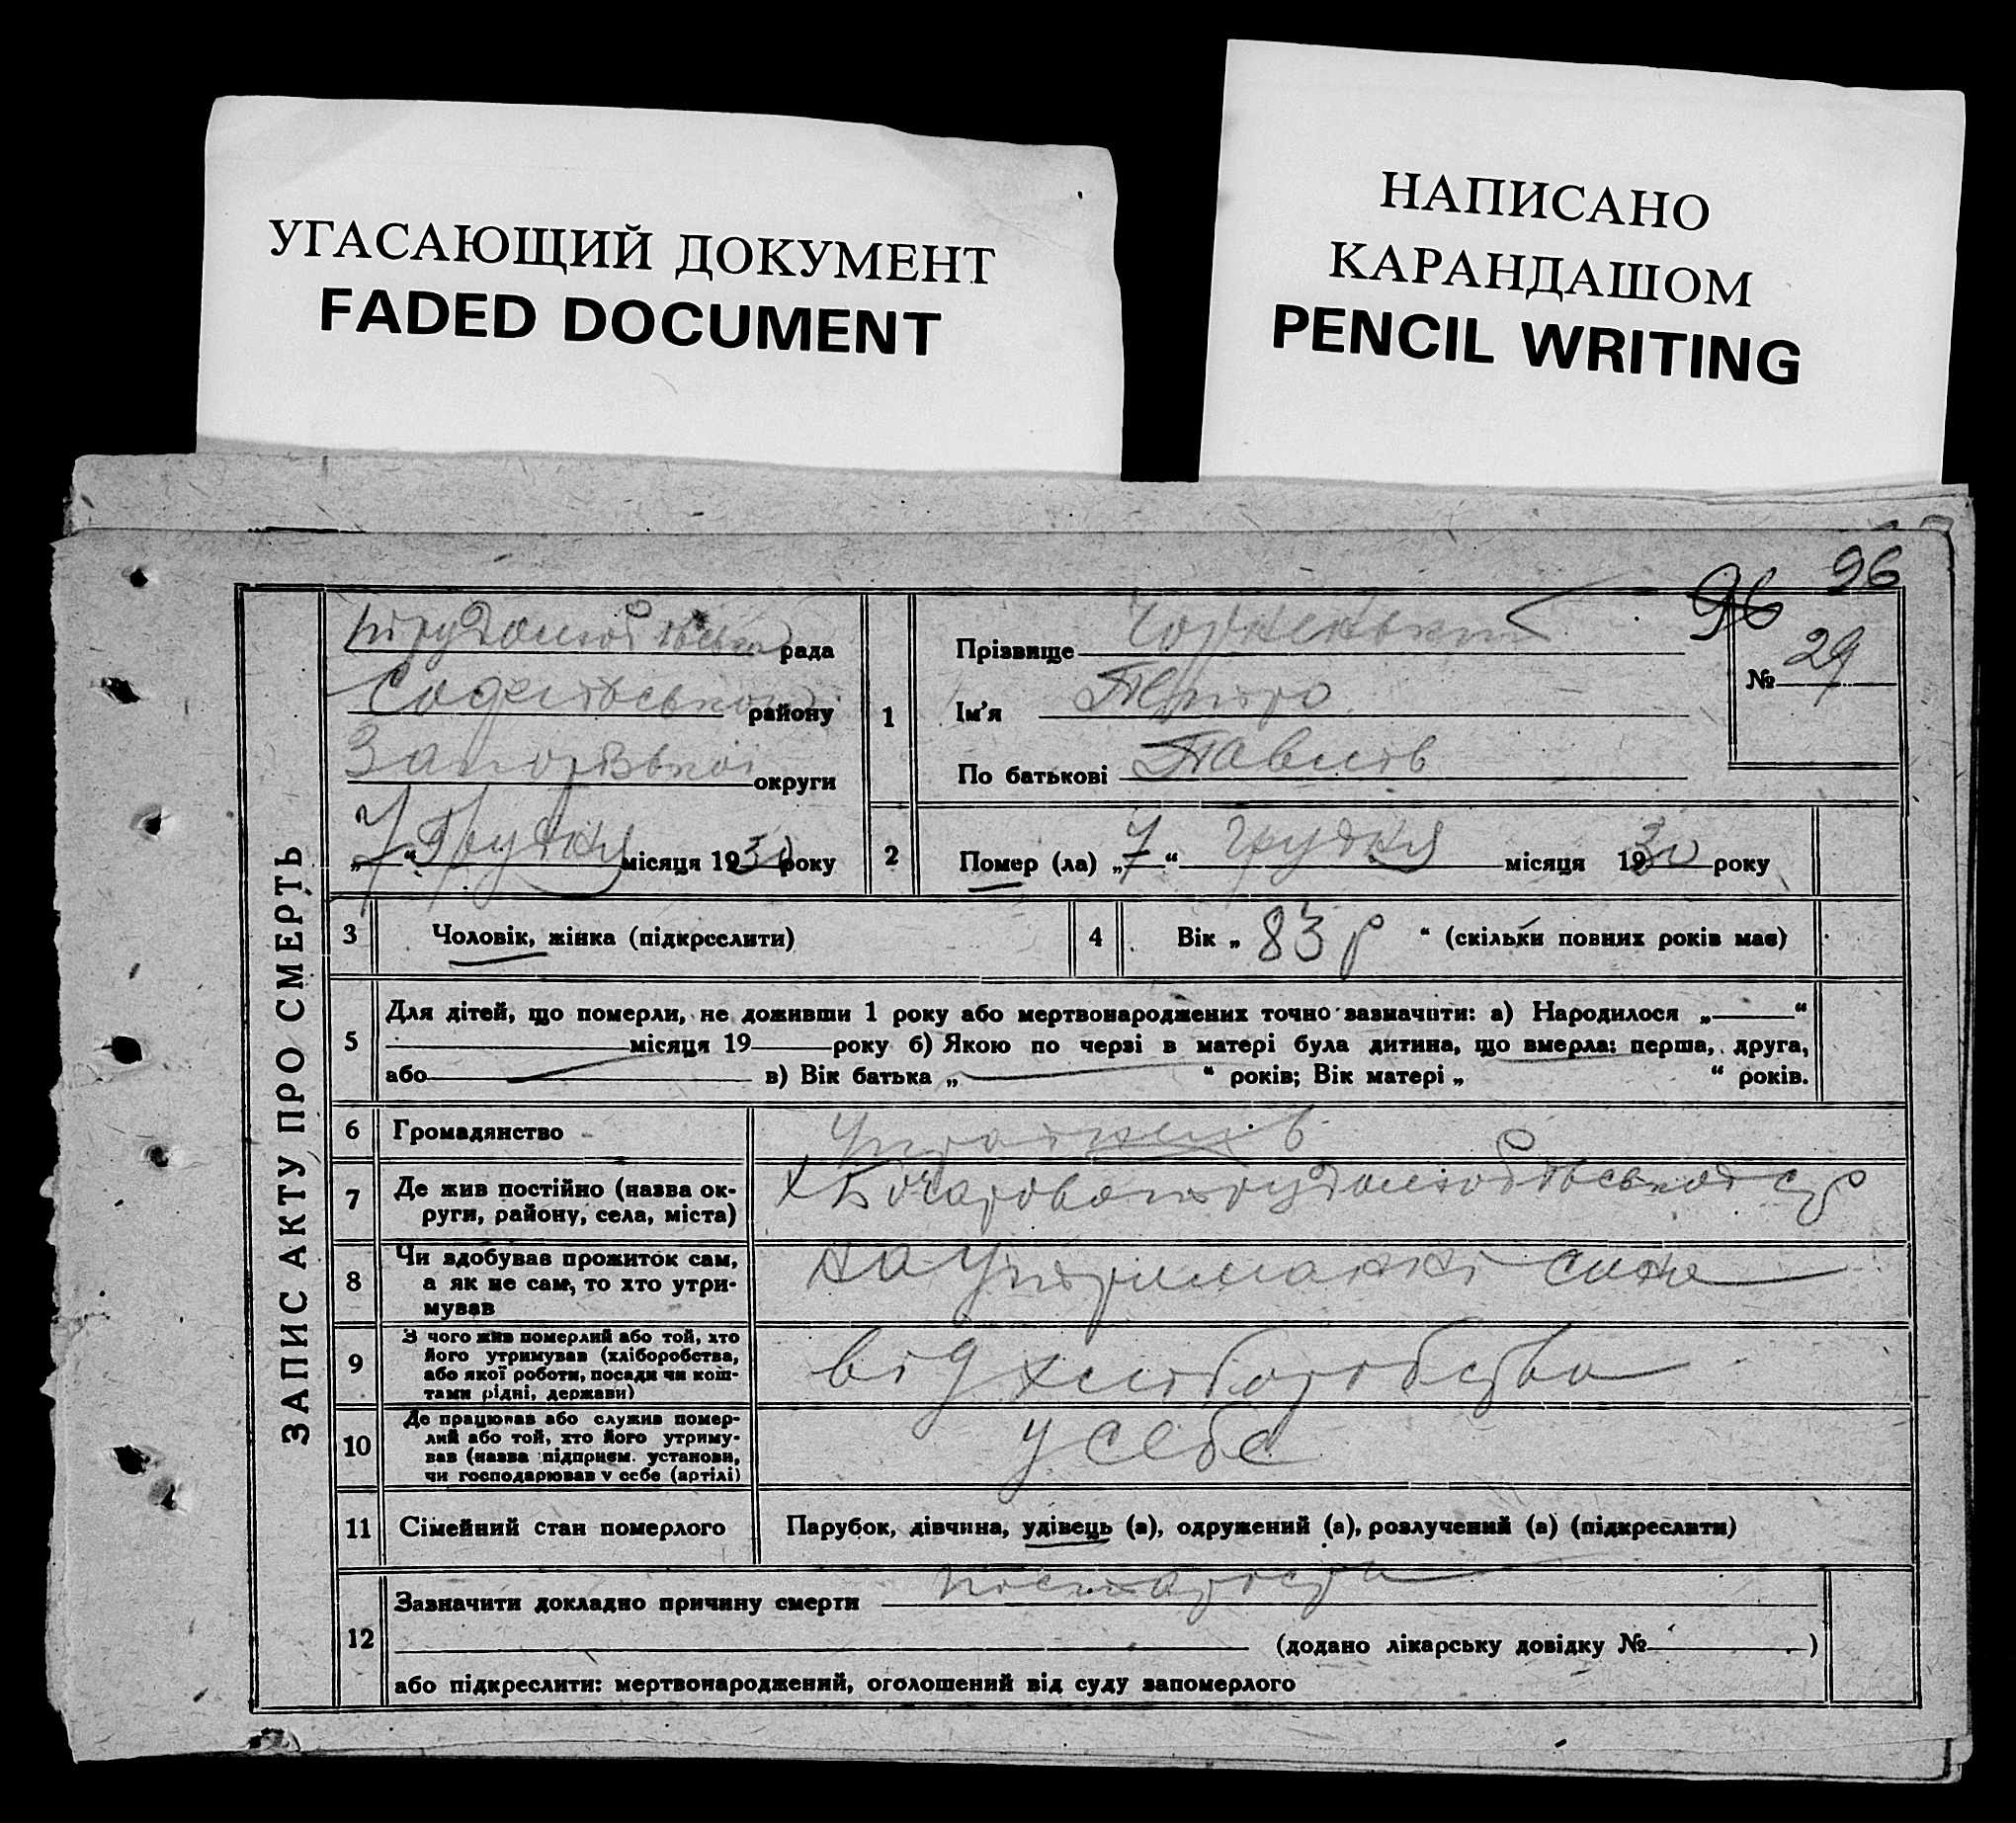 УГАСАЮЩИЙ ДОКУМЕНТ
FADED DOCUMENT
НАПИСАНО
КАРАНДАШОМ
PENCIL WRITING
96
96
ЗАПИС АКТУ ПРО СМЕРТЬ
рада
Софіївського району
округи
„7“ Грудня місяця 1930 року
1
Прізвище
Ім'я Петро
По батькові Павлов
№ 29
2
Помер (ла) „7“ грудня місяця 1930 року
3
Чоловік, жінка (підкреслити)
4
Вік „83 р“ (скільки повних років має)
5
Для дітей, що померли, не доживши 1 року або мертвонароджених точно зазначити: а) Народилося „ “
місяця 19 року б) Якою по черзі в матері була дитина, що вмерла: перша, друга,
або в) Вік батька „ “ років; Вік матері „ “ років.
6
Громадянство
7
Де жив постійно (назва ок-
руги, району, села, міста)
8
Чи здобував прожиток сам,
а як не сам, то хто утри-
мував
на утриманні сина
9
З чого жив померлий або той, хто
його утримував (хліборобства,
або якої роботи, посади чи кош-
тами рідні, держави)
від хліборобства
10
Де працював або служив помер-
лий або той, хто його утриму-
вав (назва підприєм. установи,
чи господарював у себе (артілі)
у себе
11
Сімейний стан померлого
Парубок, дівчина, удівець (а), одружений (а), розлучений (а) (підкреслити)
12
Зазначити докладно причину смерти
(додано лікарську довідку № )
або підкреслити: мертвонароджений, оголошений від суду запомерлого